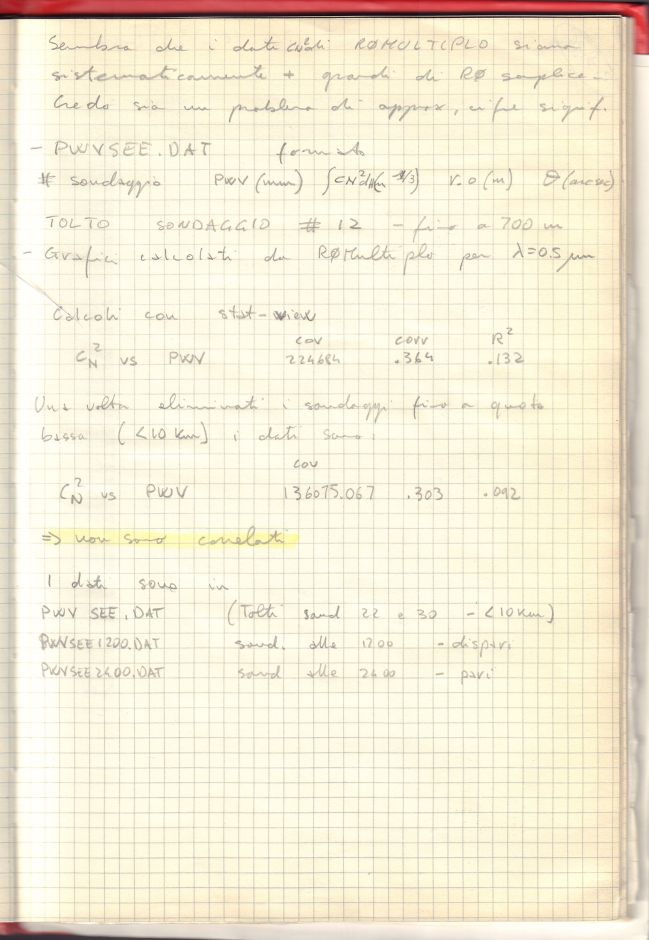 Sembra che i dati CN² di RØMULTIPLO siano
sistematicamente + grandi di RØ semplice.
Credo sia un problema di approx, cifre signif.
- PWVSEE.DAT formato
# sondaggio PWV (mm) ∫CN²dH(m^1/3) r.o (m) θ (arcsec)
TOLTO SONDAGGIO # 12 - fino a 700 m
- Grafici calcolati da RØMultiplo per λ=0.5 μm
Calcoli con stat-view
COV CORR R²
CN² vs PWV 224684 .364 .132
Una volta eliminati i sondaggi fino a quota
bassa (<10 Km) i dati sono:
COV
CN² vs PWV 136075.067 .303 .092
=> non sono correlati
I dati sono in
PWV SEE.DAT (Tolti sond 22 e 30 - <10Km)
PWVSEE1200.DAT sond. alle 1200 - dispari
PWVSEE2400.DAT sond alle 2400 - pari